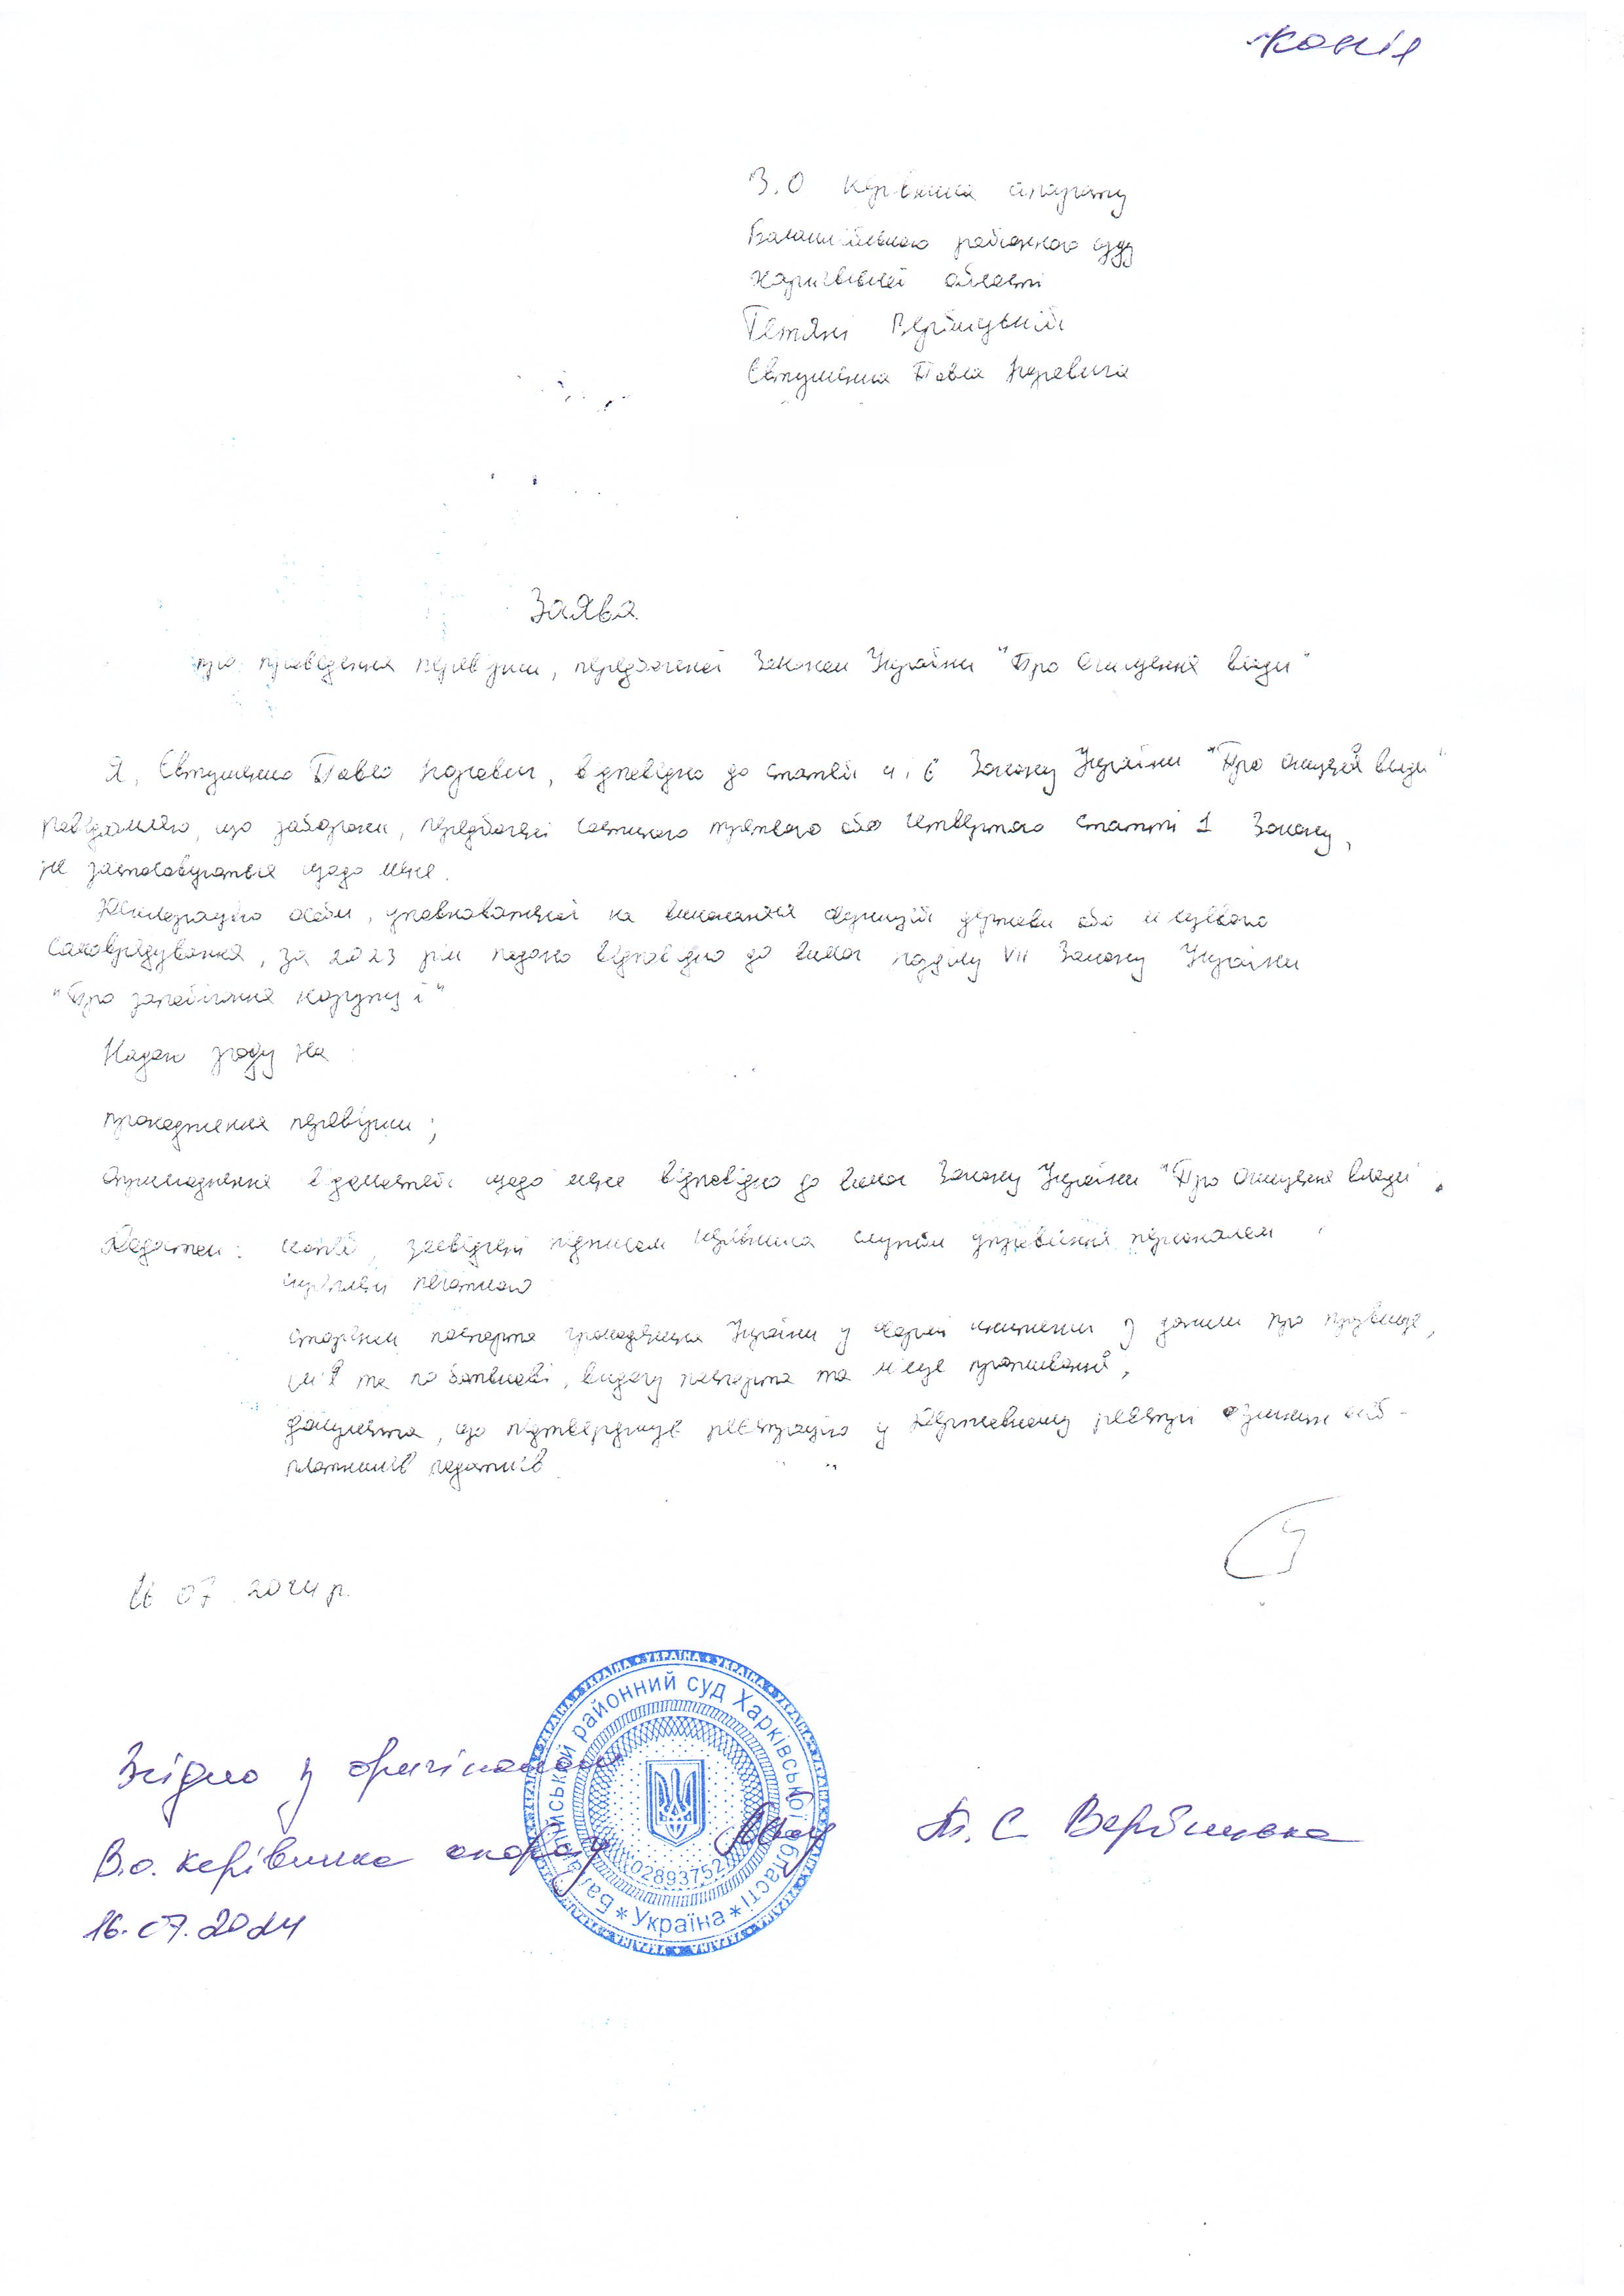 копія
В.О керівника апарату
Балаклійського районного суду
Харківської області
Тетяні Вербицькій
Євтушенка Павла Ігоревича
Заява
про проведення перевірки, передбаченої Законом України "Про очищення влади"
Я, Євтушенко Павло Ігоревич, відповідно до статей 4 і 6 Закону України "Про очищення влади"
повідомляю, що заборони, передбачені частиною третьою або четвертою статті 1 Закону,
не застосовуються щодо мене.
Декларацію особи, уповноваженої на виконання функцій держави або місцевого
самоврядування, за 2023 рік подано відповідно до вимог розділу VII Закону України
"Про запобігання корупції"
Надаю згоду на:
проходження перевірки;
оприлюднення відомостей щодо мене відповідно до вимог Закону України "Про очищення влади".
Додатки: копії, засвідчені підписом керівника служби управління персоналом і
скріплені печаткою
сторінок паспорта громадянина України у формі книжечки з даними про прізвище,
ім'я та по батькові, видачу паспорта та місце проживання,
документа, що підтверджує реєстрацію у Державному реєстрі фізичних осіб-
платників податків
16 07 2024 р.
Згідно з оригіналом
В.о. керівника апарату Т. С Вербицька
16.07.2024
Балаклійський районний суд Харківської області
* Україна *
02893752
УКРАЇНА * УКРАЇНА * УКРАЇНА